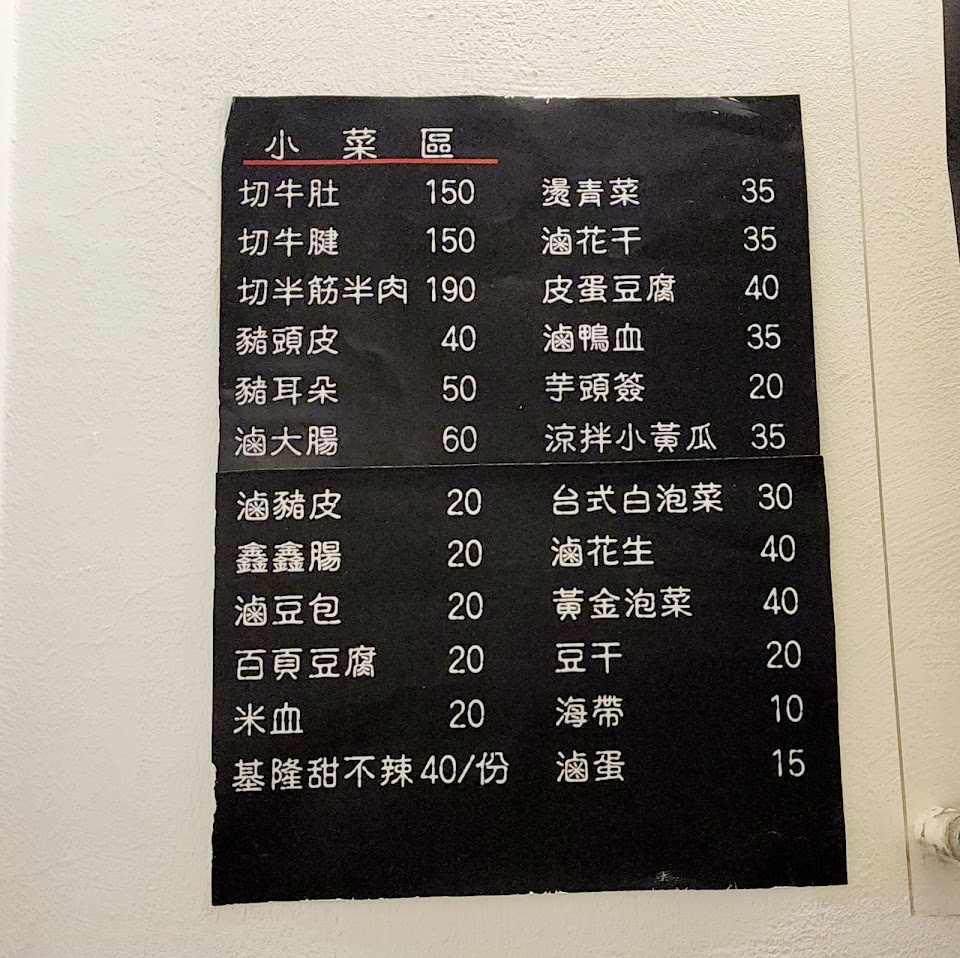 小菜區
切牛肚 150
切牛腱 150
切半筋半肉 190
豬頭皮 40
豬耳朵 50
滷大腸 60
滷豬皮 20
鑫鑫腸 20
滷豆包 20
百頁豆腐 20
米血 20
基隆甜不辣 40/份
燙青菜 35
滷花干 35
皮蛋豆腐 40
滷鴨血 35
芋頭簽 20
涼拌小黃瓜 35
台式白泡菜 30
滷花生 40
黃金泡菜 40
豆干 20
海帶 10
滷蛋 15